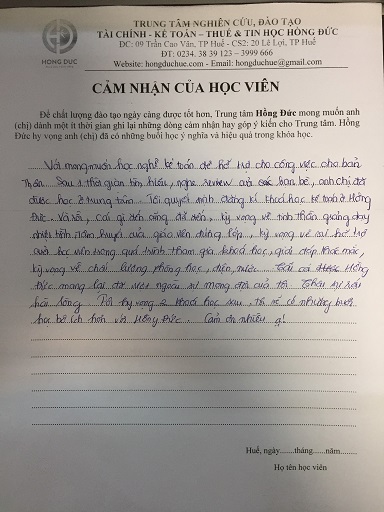 HONG DUC
TRUNG TÂM NGHIÊN CỨU, ĐÀO TẠO
TÀI CHÍNH - KẾ TOÁN – THUẾ & TIN HỌC HỒNG ĐỨC
ĐC: 09 Trần Cao Vân, TP Huế - CS2: 20 Lê Lợi, TP Huế
ĐT: 0234. 38 39 123 – 3999 666
Website: hongduchue.com - Email: hongduchue@gmail.com
CẢM NHẬN CỦA HỌC VIÊN
Để chất lượng đào tạo ngày càng được tốt hơn, Trung tâm Hồng Đức mong muốn anh
(chị) dành một ít thời gian ghi lại những dòng cảm nhận hay góp ý kiến cho Trung tâm. Hồng
Đức hy vọng anh (chị) đã có những buổi học ý nghĩa và hiệu quả trong khóa học.
Với mong muốn học nghề kế toán để hỗ trợ cho công việc cho bản
thân. Sau 1 thời gian tìm hiểu, nghe review của các bạn bè, anh chị đã
được học ở trung tâm. Tôi quyết định đăng kí khoá học kế toán ở Hồng
Đức. Và rồi, cái gì đến cũng đã đến, kỳ vọng về tinh thần giảng dạy
nhiệt tình, tâm huyết của giáo viên đứng lớp, kỳ vọng về sự hỗ trợ
của học viên trong quá trình tham gia khoá học, giải đáp thắc mắc,
kỳ vọng về chất lượng phòng học, điện, nước. Tất cả Hồng
Đức mang lại đã vượt ngoài sự mong đợi của tôi. Thật sự rất
hài lòng. Rồi hy vọng ở khoá học sau, tôi sẽ có những buổi
học bổ ích hơn với Hồng Đức. Cảm ơn nhiều ạ!
Huế, ngày.......tháng......năm........
Họ tên học viên